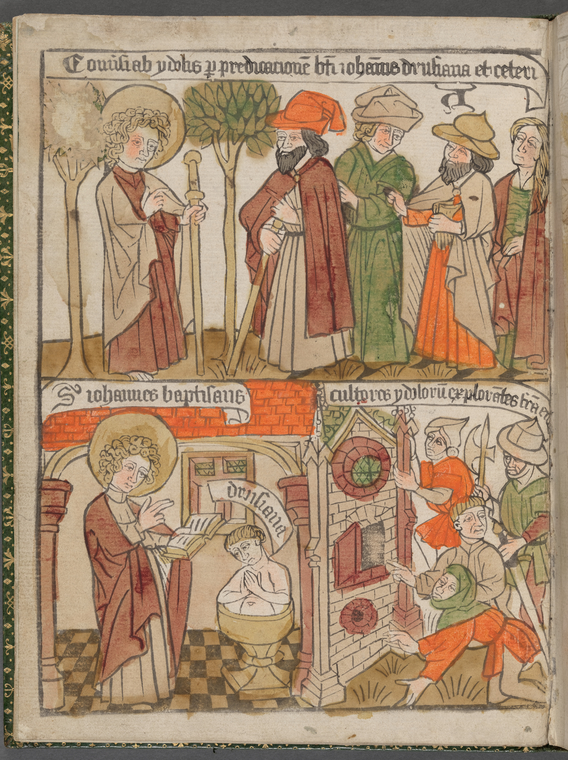 Conuersi ab ydolis p predicationē bti iohannis drusiana et ceteri
S iohannes baptisans
drusiana
cultores ydolorū explorātes